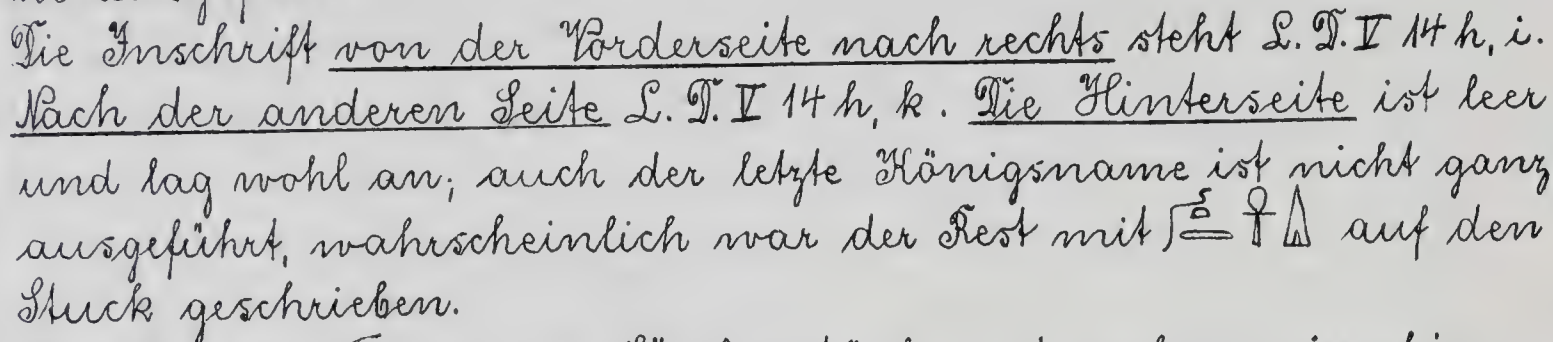 Die Inschrift von der Vorderseite nach rechts steht L. D. V 14 h, i.
Nach der anderen Seite L. D. V 14 h, k. Die Hinterseite ist leer
und lag wohl an; auch der letzte Königsname ist nicht ganz
ausgeführt, wahrscheinlich war der Rest mit 𓋹 auf den
Stuck geschrieben.